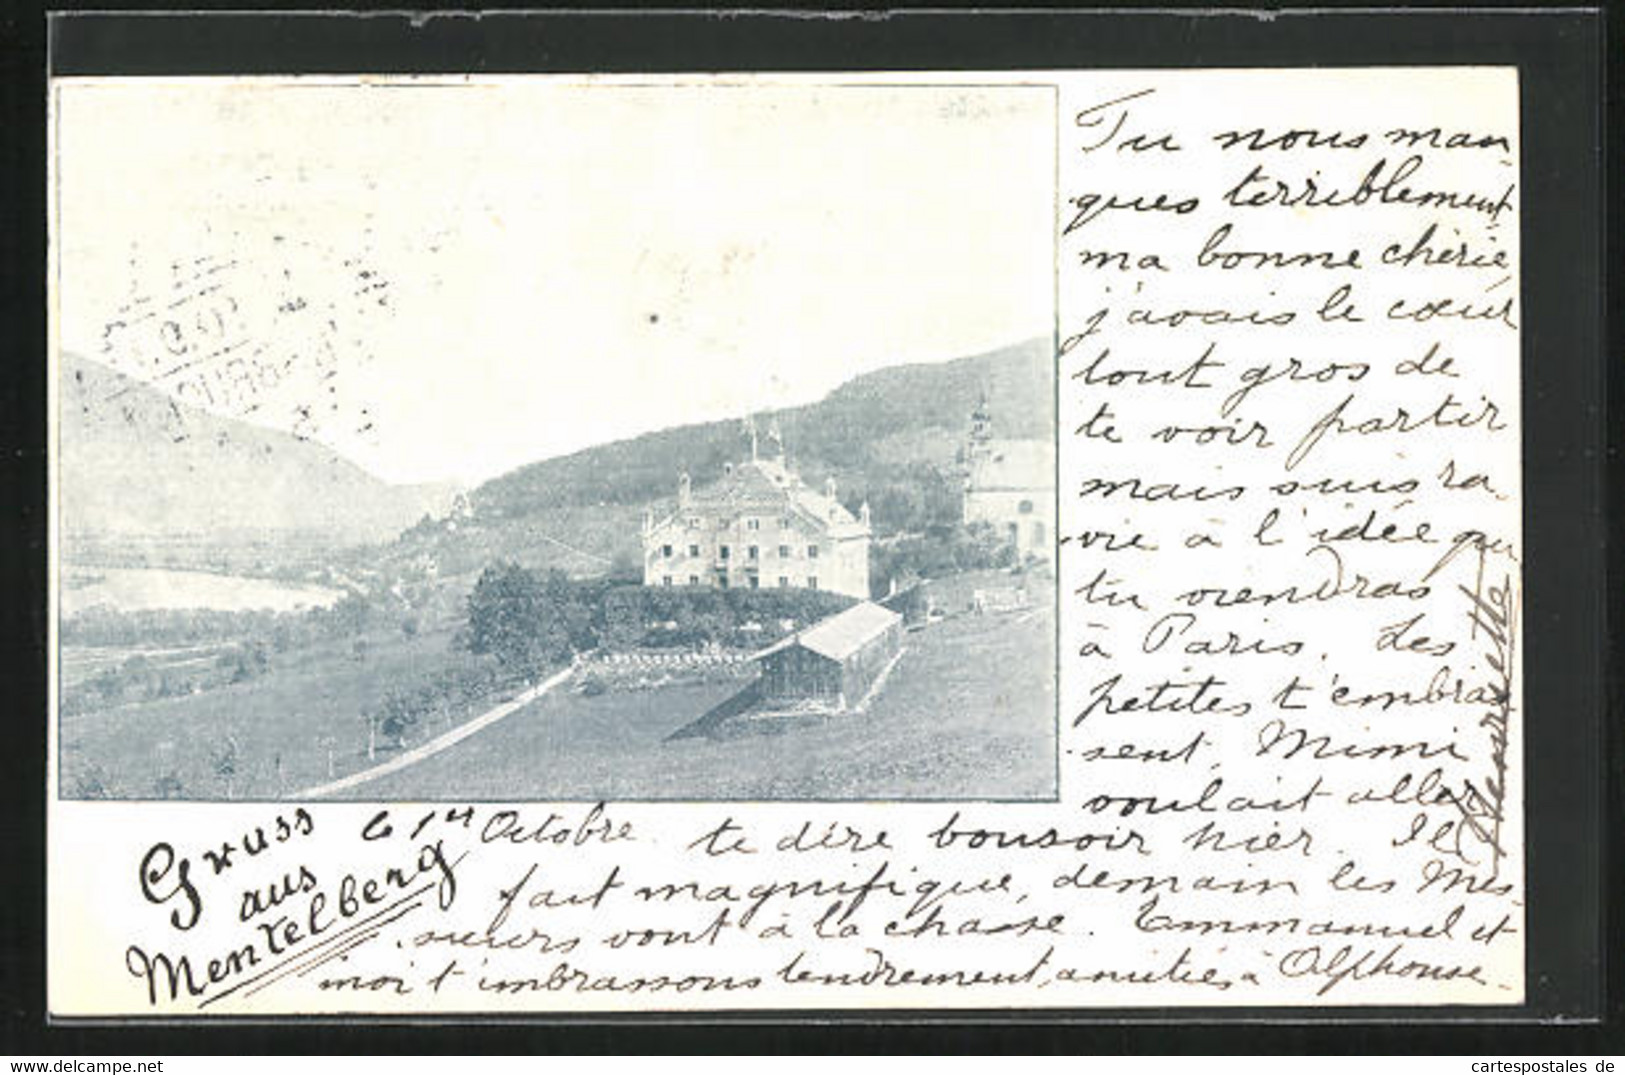 Tu nous man-
ques terriblement
ma bonne chérie,
j'avais le cœur
tout gros de
te voir partir
mais suis ra-
vie à l'idée que
tu viendras
à Paris. Les
petites t'embras-
sent. Mimi
voulait aller
Gruss
aus
Mentelberg
le 1er Octobre.
te dire bonsoir hier. Il
fait magnifique, demain les Mes-
sieurs vont à la chasse. Emmanuel et
moi t'embrassons tendrement, amitiés à Alphonse.
cartespostales de
www.cartespostales.net